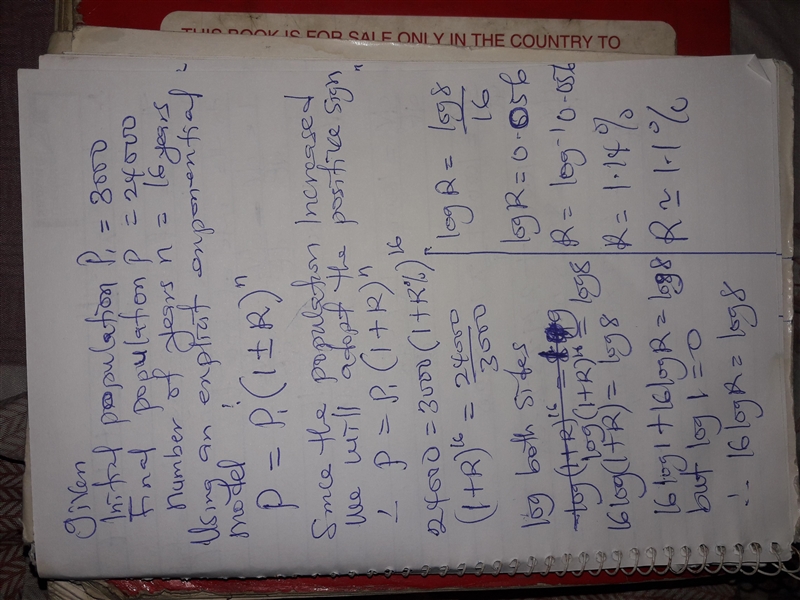 THIS BOOK IS FOR SALE ONLY IN THE COUNTRY TO
Given
Initial population P₁ = 3000
Final population P = 24000
Number of years n = 16 years
Using an explicit exponential
model;
P = P₁(1±R)ⁿ
Since the population increased
We will adopt the positive sign
∴ P = P₁(1+R)ⁿ
24000 = 3000(1+R%)¹⁶
(1+R)¹⁶ = 24000/3000
log both sides
log(1+R)¹⁶ =
log(1+R)¹⁶ = log8
16log(1+R) = log8
16log1+16logR = log8
but log1 = 0
∴ 16logR = log8
logR = log8/16
logR = 0.056
R = log⁻¹0.056
R = 1.14%
R ≈ 1.1%